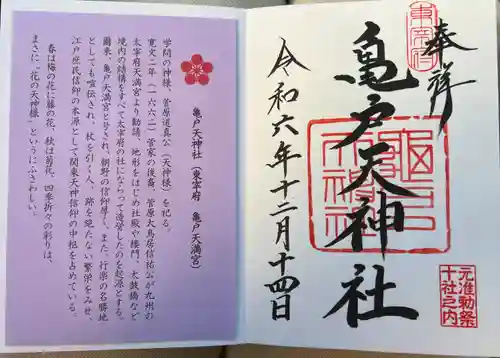 奉拝
東宰府
亀戸天神社
亀戸天神社
元准勅祭
十社之内
令和六年十二月十四日
亀戸天神社（東宰府 亀戸天満宮）
学問の神様、菅原道真公（天神様）を祀る。
寛文二年（一六六二）菅家の後裔、菅原大鳥居信祐公が九州の
太宰府天満宮より勧請、地形をはじめ社殿や楼門、太鼓橋など
境内の結構をすべて太宰府の社にならって造営したのを起源とする。
爾来、亀戸天満宮と称され、朝野の信仰厚く、また、行楽の名勝地
としても宣伝され、杖を引く人、跡を絶たない繁栄をみせ、
江戸庶民信仰の本源として関東天神信仰の中枢を占めている。
春は梅の花に藤の花、秋は菊花、四季折々の彩りは、
まさに、"花の天神様"というにふさわしい。